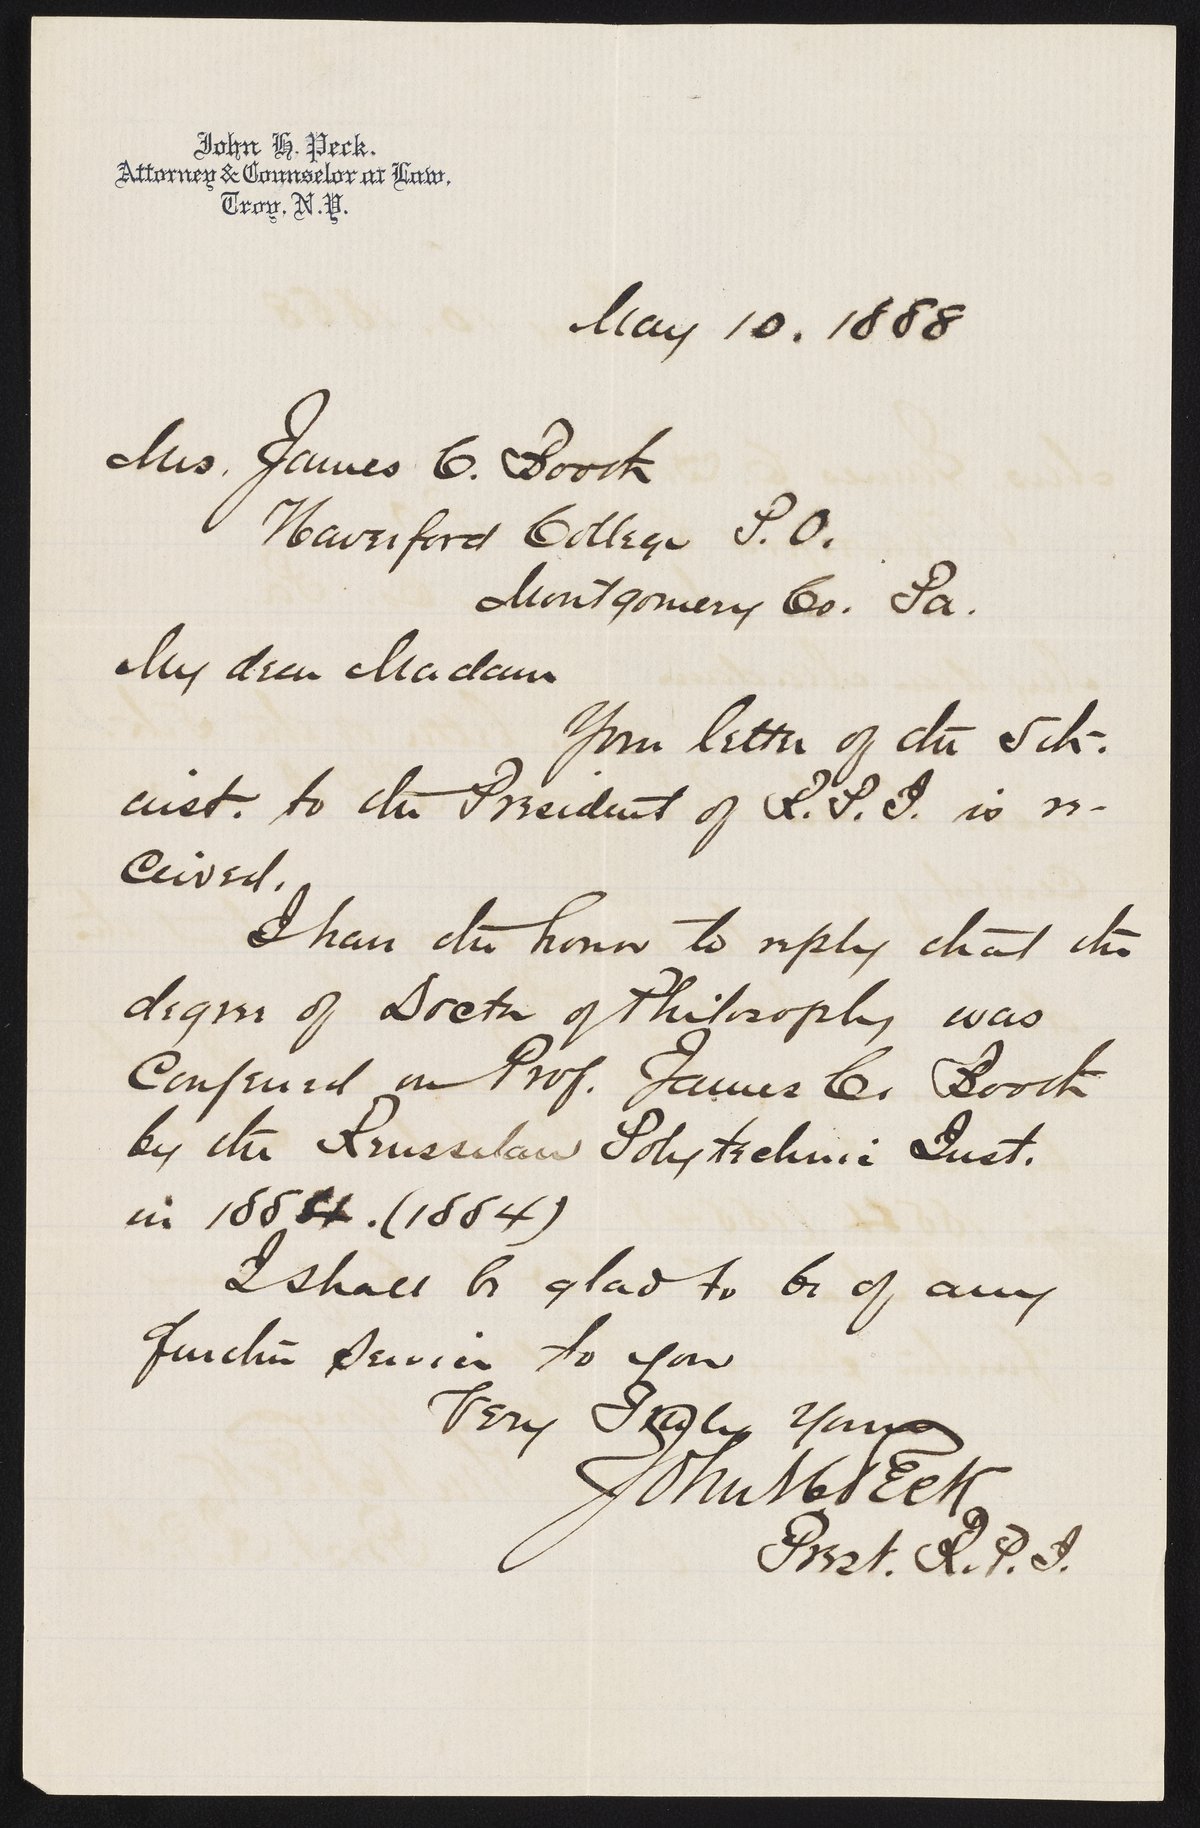 John H. Peck.
Attorney & Counselor at Law,
Troy, N.Y.
May 10. 1888
Mrs. James C. Booth
Haverford College P.O.
Montgomery Co. Pa.
My dear Madam
Your letter of the 5th.
inst. to the President of R.P.I. is re-
ceived.
I have the honor to reply that the
degree of Doctor of Philosophy was
Conferred on Prof. James C. Booth
by the Rensselaer Polytechnic Inst.
in 1884. (1884)
I shall be glad to be of any
further service to you
Very Truly Yours
John H Peck
Prest. R.P.I.